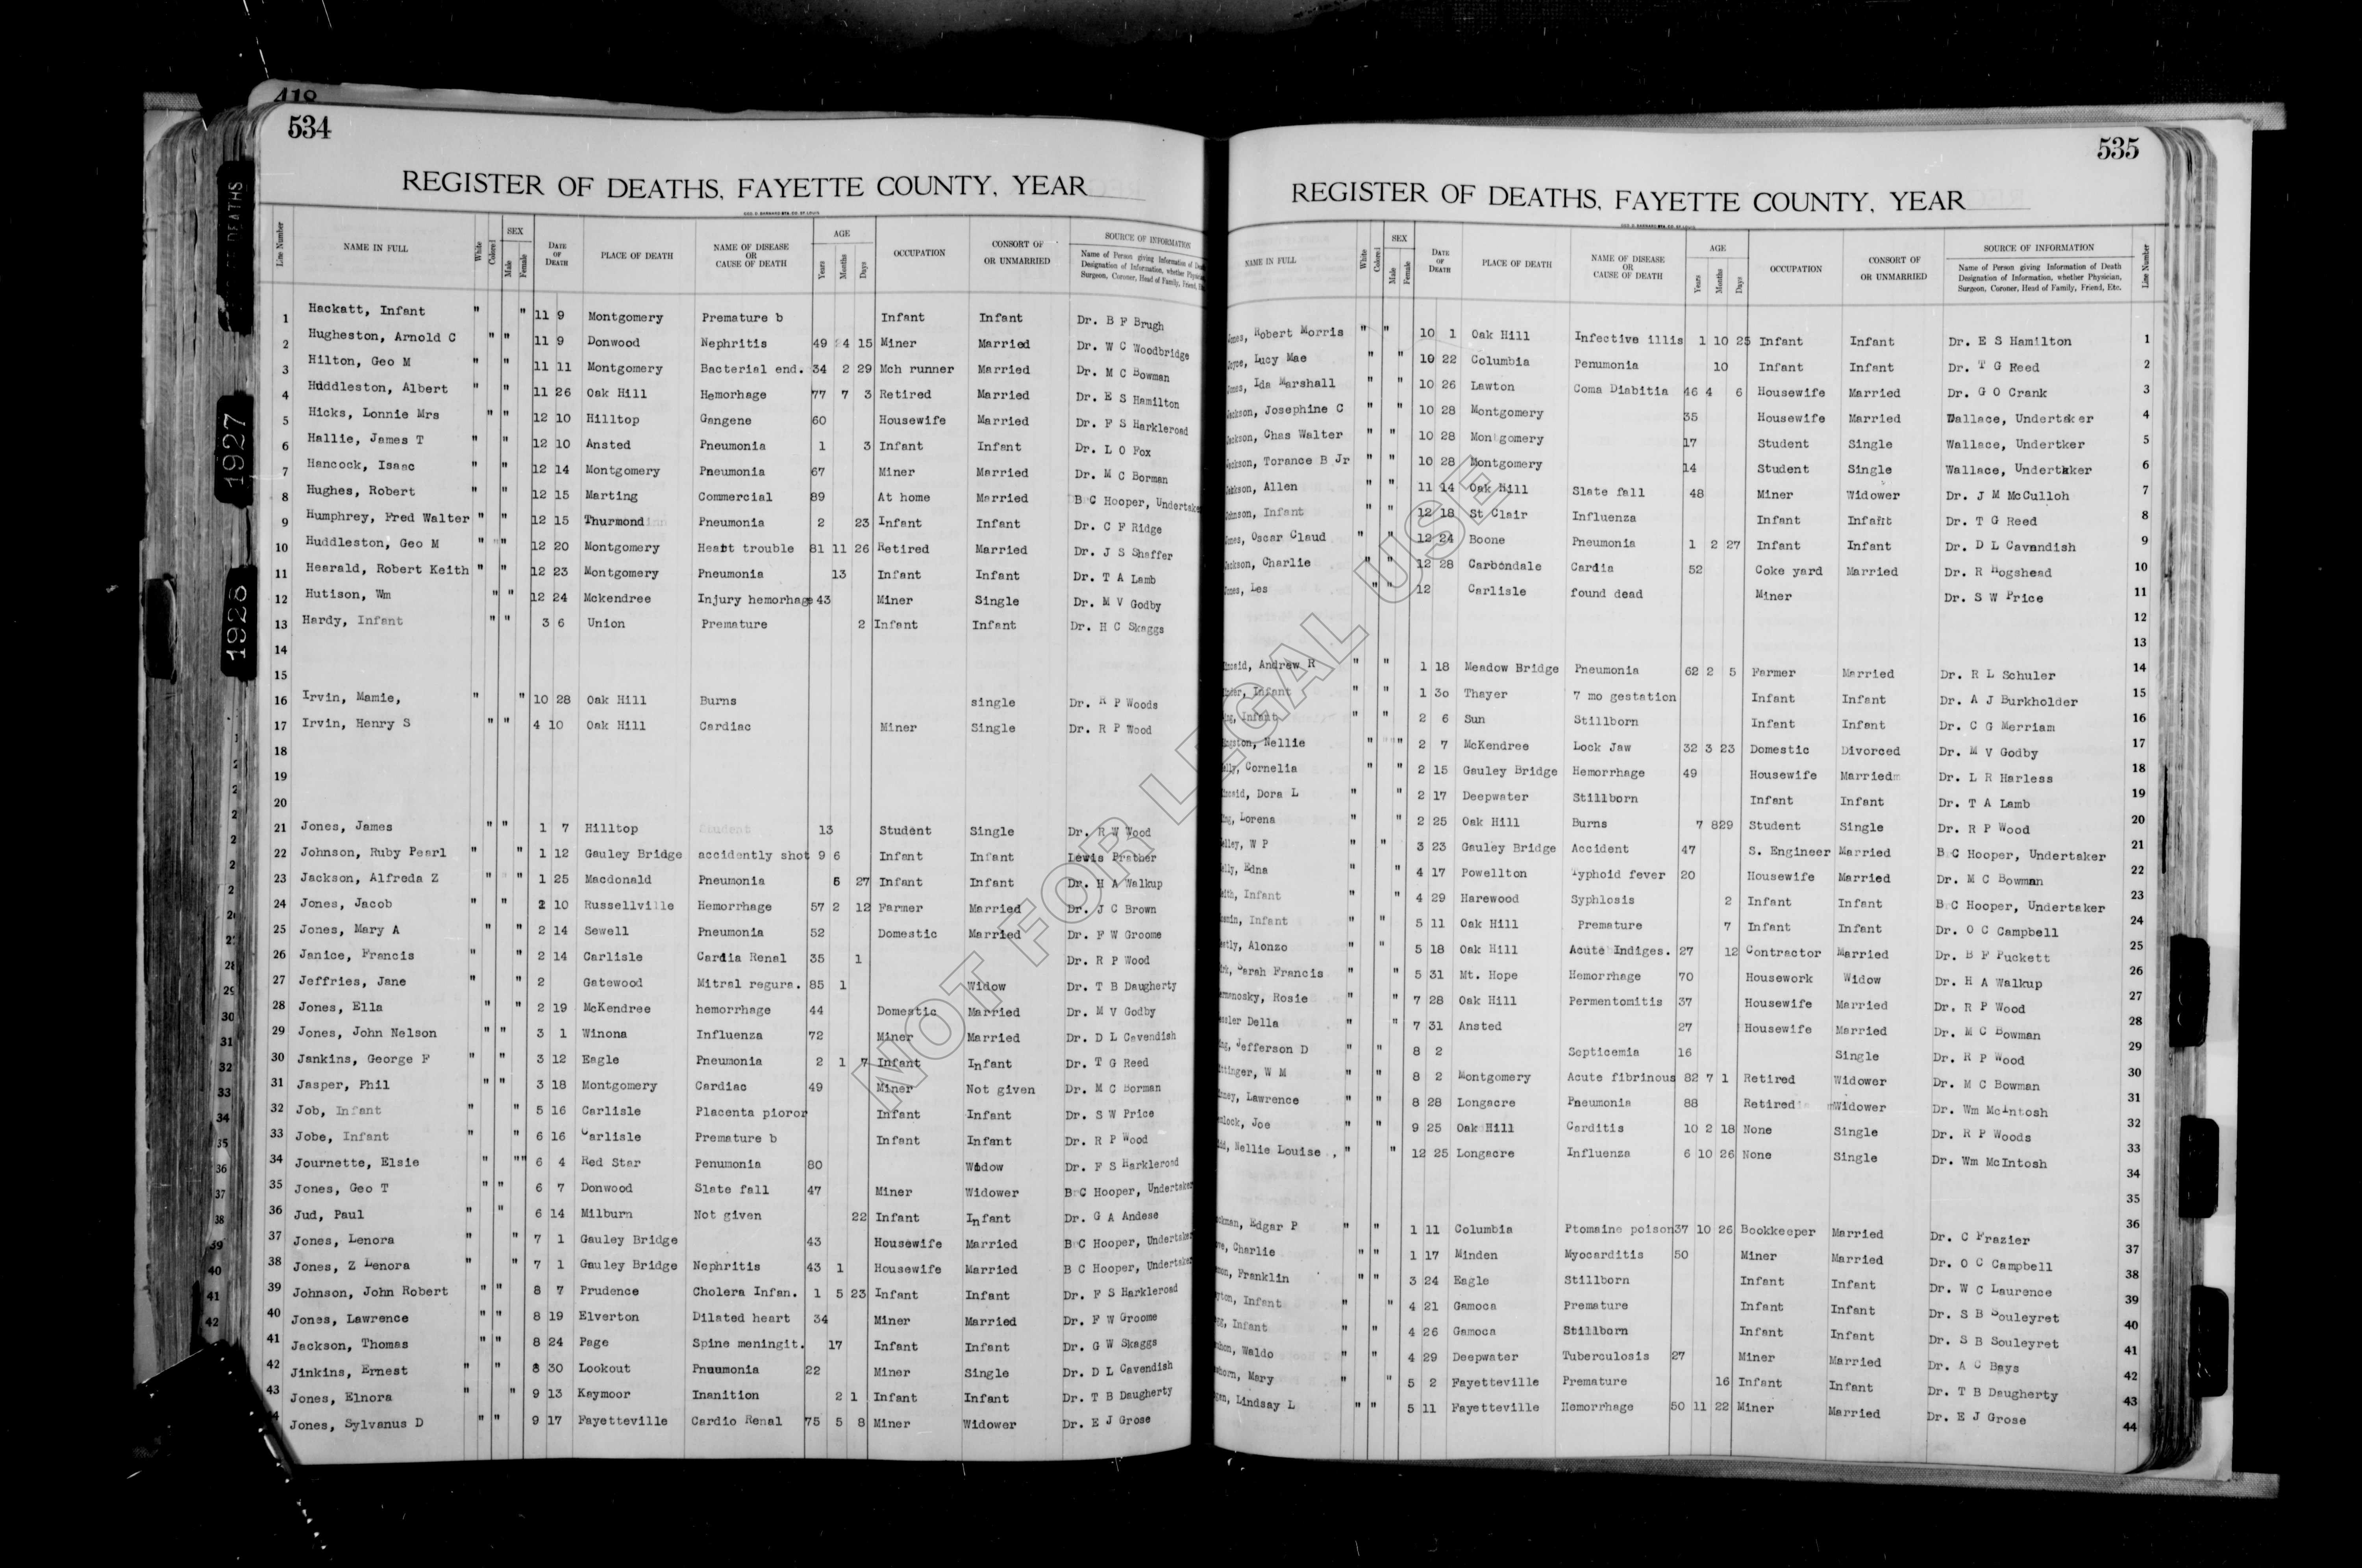 418
534
REGISTER OF DEATHS, FAYETTE COUNTY, YEAR
Line Number NAME IN FULL White Colored SEX Male Female DATE OF DEATH PLACE OF DEATH NAME OF DISEASE OR CAUSE OF DEATH AGE Years Months Days OCCUPATION CONSORT OF OR UNMARRIED SOURCE OF INFORMATION
1 Hackatt, Infant " " 11 9 Montgomery Premature b Infant Infant Dr. B F Brugh
2 Hugheston, Arnold C " " 11 9 Donwood Nephritis 49 4 15 Miner Married Dr. W C Woodbridge
3 Hilton, Geo M " " 11 11 Montgomery Bacterial end. 34 2 29 Mch runner Married Dr. M C Bowman
4 Huddleston, Albert " " 11 26 Oak Hill Hemorhage 77 7 3 Retired Married Dr. E S Hamilton
5 Hicks, Lonnie Mrs " " 12 10 Hilltop Gangene 60 Housewife Married Dr. F S Harkleroad
6 Hallie, James T " " 12 10 Ansted Pneumonia 1 3 Infant Infant Dr. L O Fox
7 Hancock, Isaac " " 12 14 Montgomery Pneumonia 67 Miner Married Dr. M C Borman
8 Hughes, Robert " " 12 15 Marting Commercial 89 At home Married B C Hooper, Undertaker
9 Humphrey, Fred Walter " " 12 15 Thurmond Pneumonia 2 23 Infant Infant Dr. C F Ridge
10 Huddleston, Geo M " " 12 20 Montgomery Heart trouble 81 11 26 Retired Married Dr. J S Shaffer
11 Hearald, Robert Keith " " 12 23 Montgomery Pneumonia 13 Infant Infant Dr. T A Lamb
12 Hutison, Wm " " 12 24 Mckendree Injury hemorhage 43 Miner Single Dr. M V Godby
13 Hardy, Infant " " 3 6 Union Premature 2 Infant Infant Dr. H C Skaggs
14
15
16 Irvin, Mamie, " " 10 28 Oak Hill Burns single Dr. R P Woods
17 Irvin, Henry S " " 4 10 Oak Hill Cardiac Miner Single Dr. R P Wood
18
19
20
21 Jones, James " " 1 7 Hilltop Student 13 Student Single Dr. R W Wood
22 Johnson, Ruby Pearl " " 1 12 Gauley Bridge accidently shot 9 6 Infant Infant Lewis Prather
23 Jackson, Alfreda Z " " 1 25 Macdonald Pneumonia 6 27 Infant Infant Dr. H A Walkup
24 Jones, Jacob " " 2 10 Russellville Hemorrhage 57 2 12 Farmer Married Dr. J C Brown
25 Jones, Mary A " " 2 14 Sewell Pneumonia 52 Domestic Married Dr. F W Groome
26 Janice, Francis " " 2 14 Carlisle Cardia Renal 35 1 Dr. R P Wood
27 Jeffries, Jane " " 2 Gatewood Mitral regura. 85 1 Widow Dr. T B Daugherty
28 Jones, Ella " " 2 19 McKendree hemorrhage 44 Domestic Married Dr. M V Godby
29 Jones, John Nelson " " 3 1 Winona Influenza 72 Miner Married Dr. D L Cavendish
30 Jankins, George F " " 3 12 Eagle Pneumonia 2 1 7 Infant Infant Dr. T G Reed
31 Jasper, Phil " " 3 18 Montgomery Cardiac 49 Miner Not given Dr. M C Borman
32 Job, Infant " " 5 16 Carlisle Placenta pioror Infant Infant Dr. S W Price
33 Jobe, Infant " " 6 16 Carlisle Premature b Infant Infant Dr. R P Wood
34 Journette, Elsie " "" 6 4 Red Star Penumonia 80 Widow Dr. F S Harkleroad
35 Jones, Geo T " " 6 7 Donwood Slate fall 47 Miner Widower B C Hooper, Undertaker
36 Jud, Paul " " 6 14 Milburn Not given 22 Infant Infant Dr. G A Andese
37 Jones, Lenora " " 7 1 Gauley Bridge 43 Housewife Married B C Hooper, Undertaker
38 Jones, Z Lenora " " 7 1 Gauley Bridge Nephritis 43 1 Housewife Married B C Hooper, Undertaker
39 Johnson, John Robert " " 8 7 Prudence Cholera Infan. 1 5 23 Infant Infant Dr. F S Harkleroad
40 Jones, Lawrence " " 8 19 Elverton Dilated heart 34 Miner Married Dr. F W Groome
41 Jackson, Thomas " " 8 24 Page Spine meningit. 17 Infant Infant Dr. G W Skaggs
42 Jinkins, Ernest " " 8 30 Lookout Pnuumonia 22 Miner Single Dr. D L Cavendish
43 Jones, Elnora " " 9 13 Kaymoor Inanition 2 1 Infant Infant Dr. T B Daugherty
Jones, Sylvanus D " " 9 17 Fayetteville Cardio Renal 75 5 8 Miner Widower Dr. E J Grose
535
REGISTER OF DEATHS, FAYETTE COUNTY, YEAR
NAME IN FULL White Colored SEX Male Female DATE OF DEATH PLACE OF DEATH NAME OF DISEASE OR CAUSE OF DEATH AGE Years Months Days OCCUPATION CONSORT OF OR UNMARRIED SOURCE OF INFORMATION Line Number
Name of Person giving Information of Death
Designation of Information, whether Physician,
Surgeon, Coroner, Head of Family, Friend, Etc.
Robert Morris " " 10 1 Oak Hill Infective illis 1 10 25 Infant Infant Dr. E S Hamilton 1
Lucy Mae " " 10 22 Columbia Penumonia 10 Infant Infant Dr. T G Reed 2
Ida Marshall " " 10 26 Lawton Coma Diabitia 46 4 6 Housewife Married Dr. G O Crank 3
Josephine C " " 10 28 Montgomery 35 Housewife Married Wallace, Undertaker 4
Chas Walter " " 10 28 Montgomery 17 Student Single Wallace, Undertker 5
Torance B Jr " " 10 28 Montgomery 14 Student Single Wallace, Undertkker 6
Allen " " 11 14 Oak Hill Slate fall 48 Miner Widower Dr. J M McCulloh 7
Infant " " 12 18 St Clair Influenza Infant Infant Dr. T G Reed 8
Oscar Claud " " 12 24 Boone Pneumonia 1 2 27 Infant Infant Dr. D L Cavandish 9
Charlie " " 12 28 Carbondale Cardia 52 Coke yard Married Dr. R Hogshead 10
Les " " 12 Carlisle found dead Miner Dr. S W Price 11
12
13
Andrew R " " 1 18 Meadow Bridge Pneumonia 62 2 5 Farmer Married Dr. R L Schuler 14
Infant " " 1 30 Thayer 7 mo gestation Infant Infant Dr. A J Burkholder 15
Infant " " 2 6 Sun Stillborn Infant Infant Dr. C G Merriam 16
Nellie " """ 2 7 McKendree Lock Jaw 32 3 23 Domestic Divorced Dr. M V Godby 17
Cornelia " " 2 15 Gauley Bridge Hemorrhage 49 Housewife Married Dr. L R Harless 18
Dora L " " 2 17 Deepwater Stillborn Infant Infant Dr. T A Lamb 19
Lorena " " 2 25 Oak Hill Burns 7 829 Student Single Dr. R P Wood 20
W P " " 3 23 Gauley Bridge Accident 47 S. Engineer Married B C Hooper, Undertaker 21
Edna " " 4 17 Powellton Typhoid fever 20 Housewife Married Dr. M C Bowman 22
Infant " " 4 29 Harewood Syphlosis 2 Infant Infant B C Hooper, Undertaker 23
Infant " " 5 11 Oak Hill Premature 7 Infant Infant Dr. O C Campbell 24
Alonzo " " 5 18 Oak Hill Acute Indiges. 27 12 Contractor Married Dr. B F Puckett 25
Sarah Francis " " 5 31 Mt. Hope Hemorrhage 70 Housework Widow Dr. H A Walkup 26
Rosie " " 7 28 Oak Hill Permentomitis 37 Housewife Married Dr. R P Wood 27
Della " " 7 31 Ansted 27 Housewife Married Dr. M C Bowman 28
Jefferson D " " 8 2 Septicemia 16 Single Dr. R P Wood 29
W M " " 8 2 Montgomery Acute fibrinous 82 7 1 Retired Widower Dr. M C Bowman 30
Lawrence " " 8 28 Longacre Pneumonia 88 Retired Widower Dr. Wm McIntosh 31
Joe " " 9 25 Oak Hill Carditis 10 2 18 None Single Dr. R P Woods 32
Nellie Louise , " " 12 25 Longacre Influenza 6 10 26 None Single Dr. Wm McIntosh 33
34
35
Edgar P " " 1 11 Columbia Ptomaine poison 37 10 26 Bookkeeper Married Dr. C Frazier 36
Charlie " " 1 17 Minden Myocarditis 50 Miner Married Dr. O C Campbell 37
Franklin " " 3 24 Eagle Stillborn Infant Infant Dr. W C Laurence 38
Infant " " 4 21 Gamoca Premature Infant Infant Dr. S B Souleyret 39
Infant " " 4 26 Gamoca Stillborn Infant Infant Dr. S B Souleyret 40
Waldo " " 4 29 Deepwater Tuberculosis 27 Miner Married Dr. A C Bays 41
Mary " " 5 2 Fayetteville Premature 16 Infant Infant Dr. T B Daugherty 42
Lindsay L " " 5 11 Fayetteville Hemorrhage 50 11 22 Miner Married Dr. E J Grose 43
44
1927
1928
NOT FOR LEGAL USE